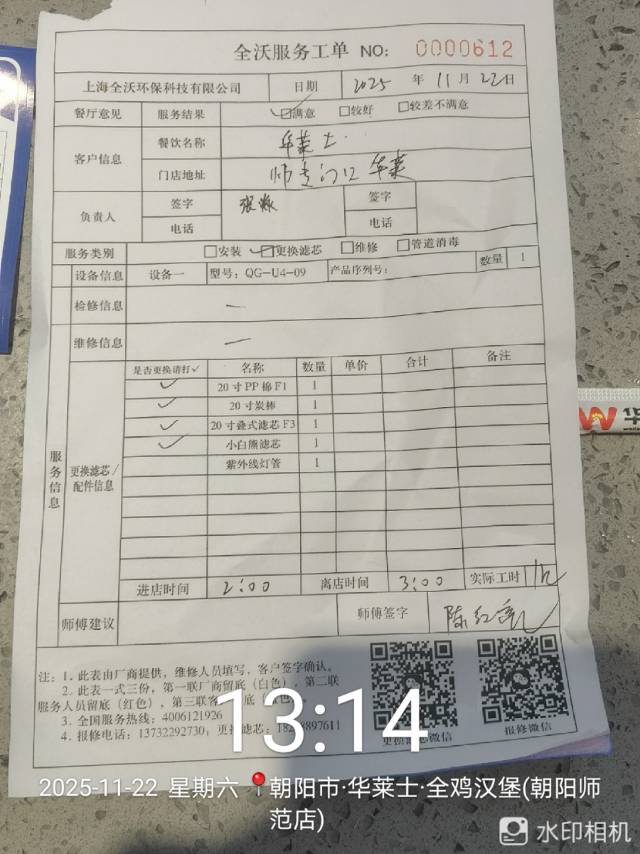 全沃服务工单 NO: 0000612
上海全沃环保科技有限公司 日期 2025 年 11 月 22 日
餐厅意见 服务结果 ☑满意 □较好 □较差不满意
客户信息 餐饮名称 华莱士
门店地址 师专门口华莱
负责人 签字 签字
电话 电话
服务类别 □安装 ☑更换滤芯 □维修 □管道消毒
设备信息 设备一 型号:QG-U4-09 产品序列号: 数量 1
检修信息 —
维修信息 —
服务信息
更换滤芯/配件信息
是否更换请打✓ 名称 数量 单价 合计 备注
✓ 20寸PP棉F1 1
✓ 20寸炭棒 1
✓ 20寸叠式滤芯F3 1
✓ 小白熊滤芯 1
紫外线灯管 1
进店时间 2:00 离店时间 3:00 实际工时 1h
师傅建议 师傅签字
注:1.此表由厂商提供,维修人员填写,客户签字确认。
2.此表一式三份,第一联厂商留底(白色),第二联
服务人员留底(红色),第三联客 底
3.全国服务热线:4006121926
4.报修电话:13732292730;更换滤芯: 97611
更换 微信 报修微信
13:14
2025-11-22 星期六 朝阳市·华莱士·全鸡汉堡(朝阳师
范店)
水印相机
华